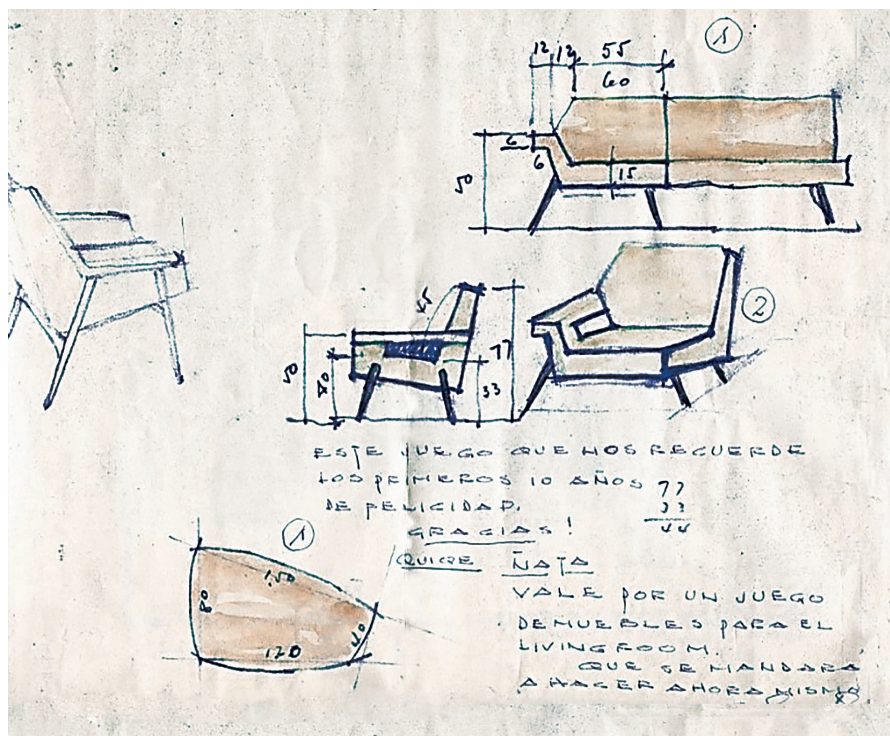 1
12 12 55
60
6
6
15
50
2
45
77
50
40
33
ESTE JUEGO QUE NOS RECUERDE
LOS PRIMEROS 10 AÑOS
DE FELICIDAD.
GRACIAS!
77
33
44
QUIQE ÑATA
1
150
80
40
120
VALE POR UN JUEGO
DE MUEBLES PARA EL
LIVINGROOM.
QUE SE MANDARA
A HACER AHORA MISMO